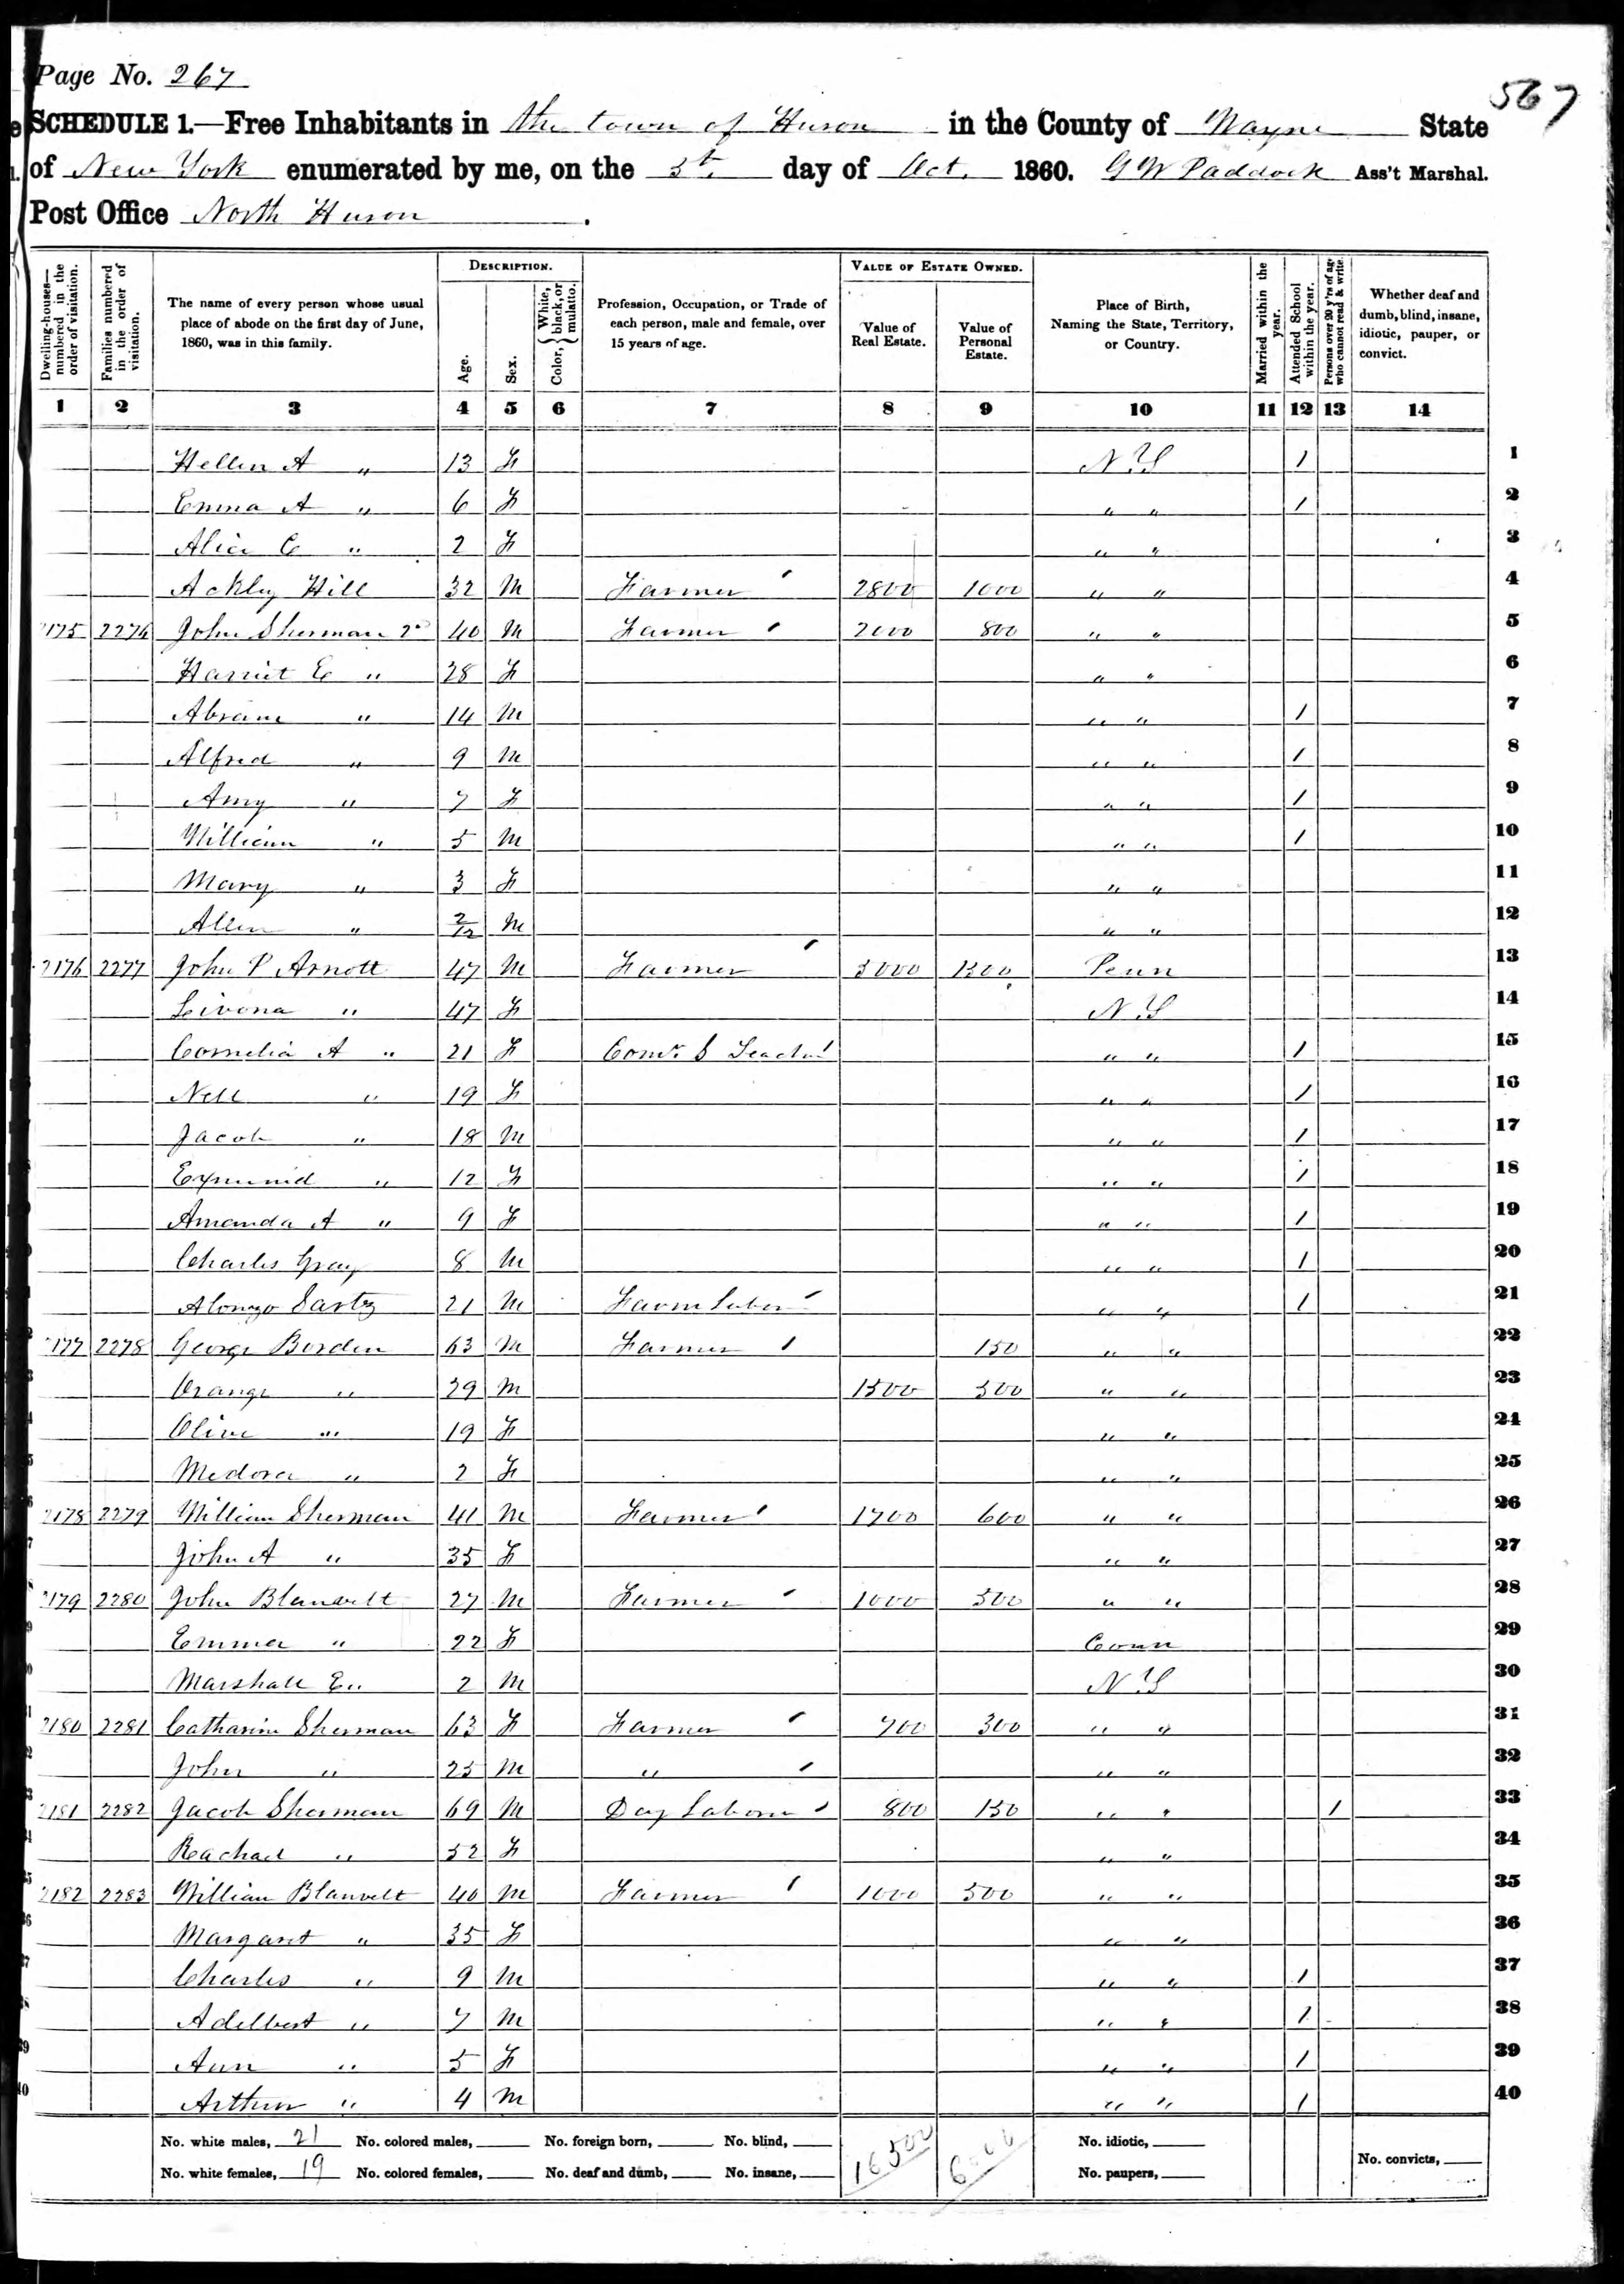 Page No. 267
567
SCHEDULE 1.—Free Inhabitants in the town of Huron in the County of Wayne State
of New York enumerated by me, on the 5t. day of Oct. 1860. G W Paddock Ass't Marshal.
Post Office North Huron.
Dwelling-houses—numbered in the order of visitation.
Families numbered in the order of visitation.
The name of every person whose usual place of abode on the first day of June, 1860, was in this family.
DESCRIPTION.
Age.
Sex.
Color, { White, black, or mulatto.
Profession, Occupation, or Trade of each person, male and female, over 15 years of age.
VALUE OF ESTATE OWNED.
Value of Real Estate.
Value of Personal Estate.
Place of Birth, Naming the State, Territory, or Country.
Married within the year.
Attended School within the year.
Persons over 20 y'rs of age who cannot read & write.
Whether deaf and dumb, blind, insane, idiotic, pauper, or convict.
1 2 3 4 5 6 7 8 9 10 11 12 13 14
Hellen A " 13 F N.Y 1 1
Emma A " 6 F " " 1 2
Alice C " 2 F " " 3
Ackley Hill 32 M Farmer 2800 1000 " " 4
2175 2276 John Sherman 2d 40 M Farmer 2000 800 " " 5
Harriet E " 28 F " " 6
Abram " 14 M " " 1 7
Alfred " 9 M " " 1 8
Amy " 7 F " " 1 9
William " 5 M " " 1 10
Mary " 3 F " " 11
Allen " 2/12 M " " 12
2176 2277 John P Arnott 47 M Farmer 1300 Penn 13
" 47 F N.Y 14
Cornelia A " 21 F Com. S Teacher " " 1 15
Nell " 19 F " " 1 16
Jacob " 18 M " " 1 17
" 12 F " " 1 18
Amanda A " 9 F " " 1 19
Charles Gray 8 M " " 1 20
Alonzo 21 M Farm Labor " " 1 21
2177 2278 George Borden 63 M Farmer 150 " " 22
Orange " 29 M 1500 " " 23
Olive " 19 F " " 24
Medora " 2 F " " 25
2178 2279 William Sherman 41 M Farmer 1700 600 " " 26
John A " 35 F " " 27
2179 2280 John Blanvelt 27 M Farmer 1000 500 " " 28
Emma " 22 F Conn 29
Marshall E " 2 M N.Y 30
2180 2281 Catharine Sherman 63 F Farmer 700 300 " " 31
John " 25 M " " " 32
2181 2282 Jacob Sherman 69 M Day Laborer 800 150 " " 1 33
Reachael " 52 F " " 34
2182 2283 William Blanvelt 40 M Farmer 1000 500 " " 35
Margaret " 35 F " " 36
Charles " 9 M " " 1 37
Adelbert " 7 M " " 1 38
Ann " 5 F " " 1 39
Arthur " 4 M " " 1 40
No. white males, 21 No. colored males, No. foreign born, No. blind, No. idiotic,
No. white females, 19 No. colored females, No. deaf and dumb, No. insane, No. paupers, No. convicts,
16500